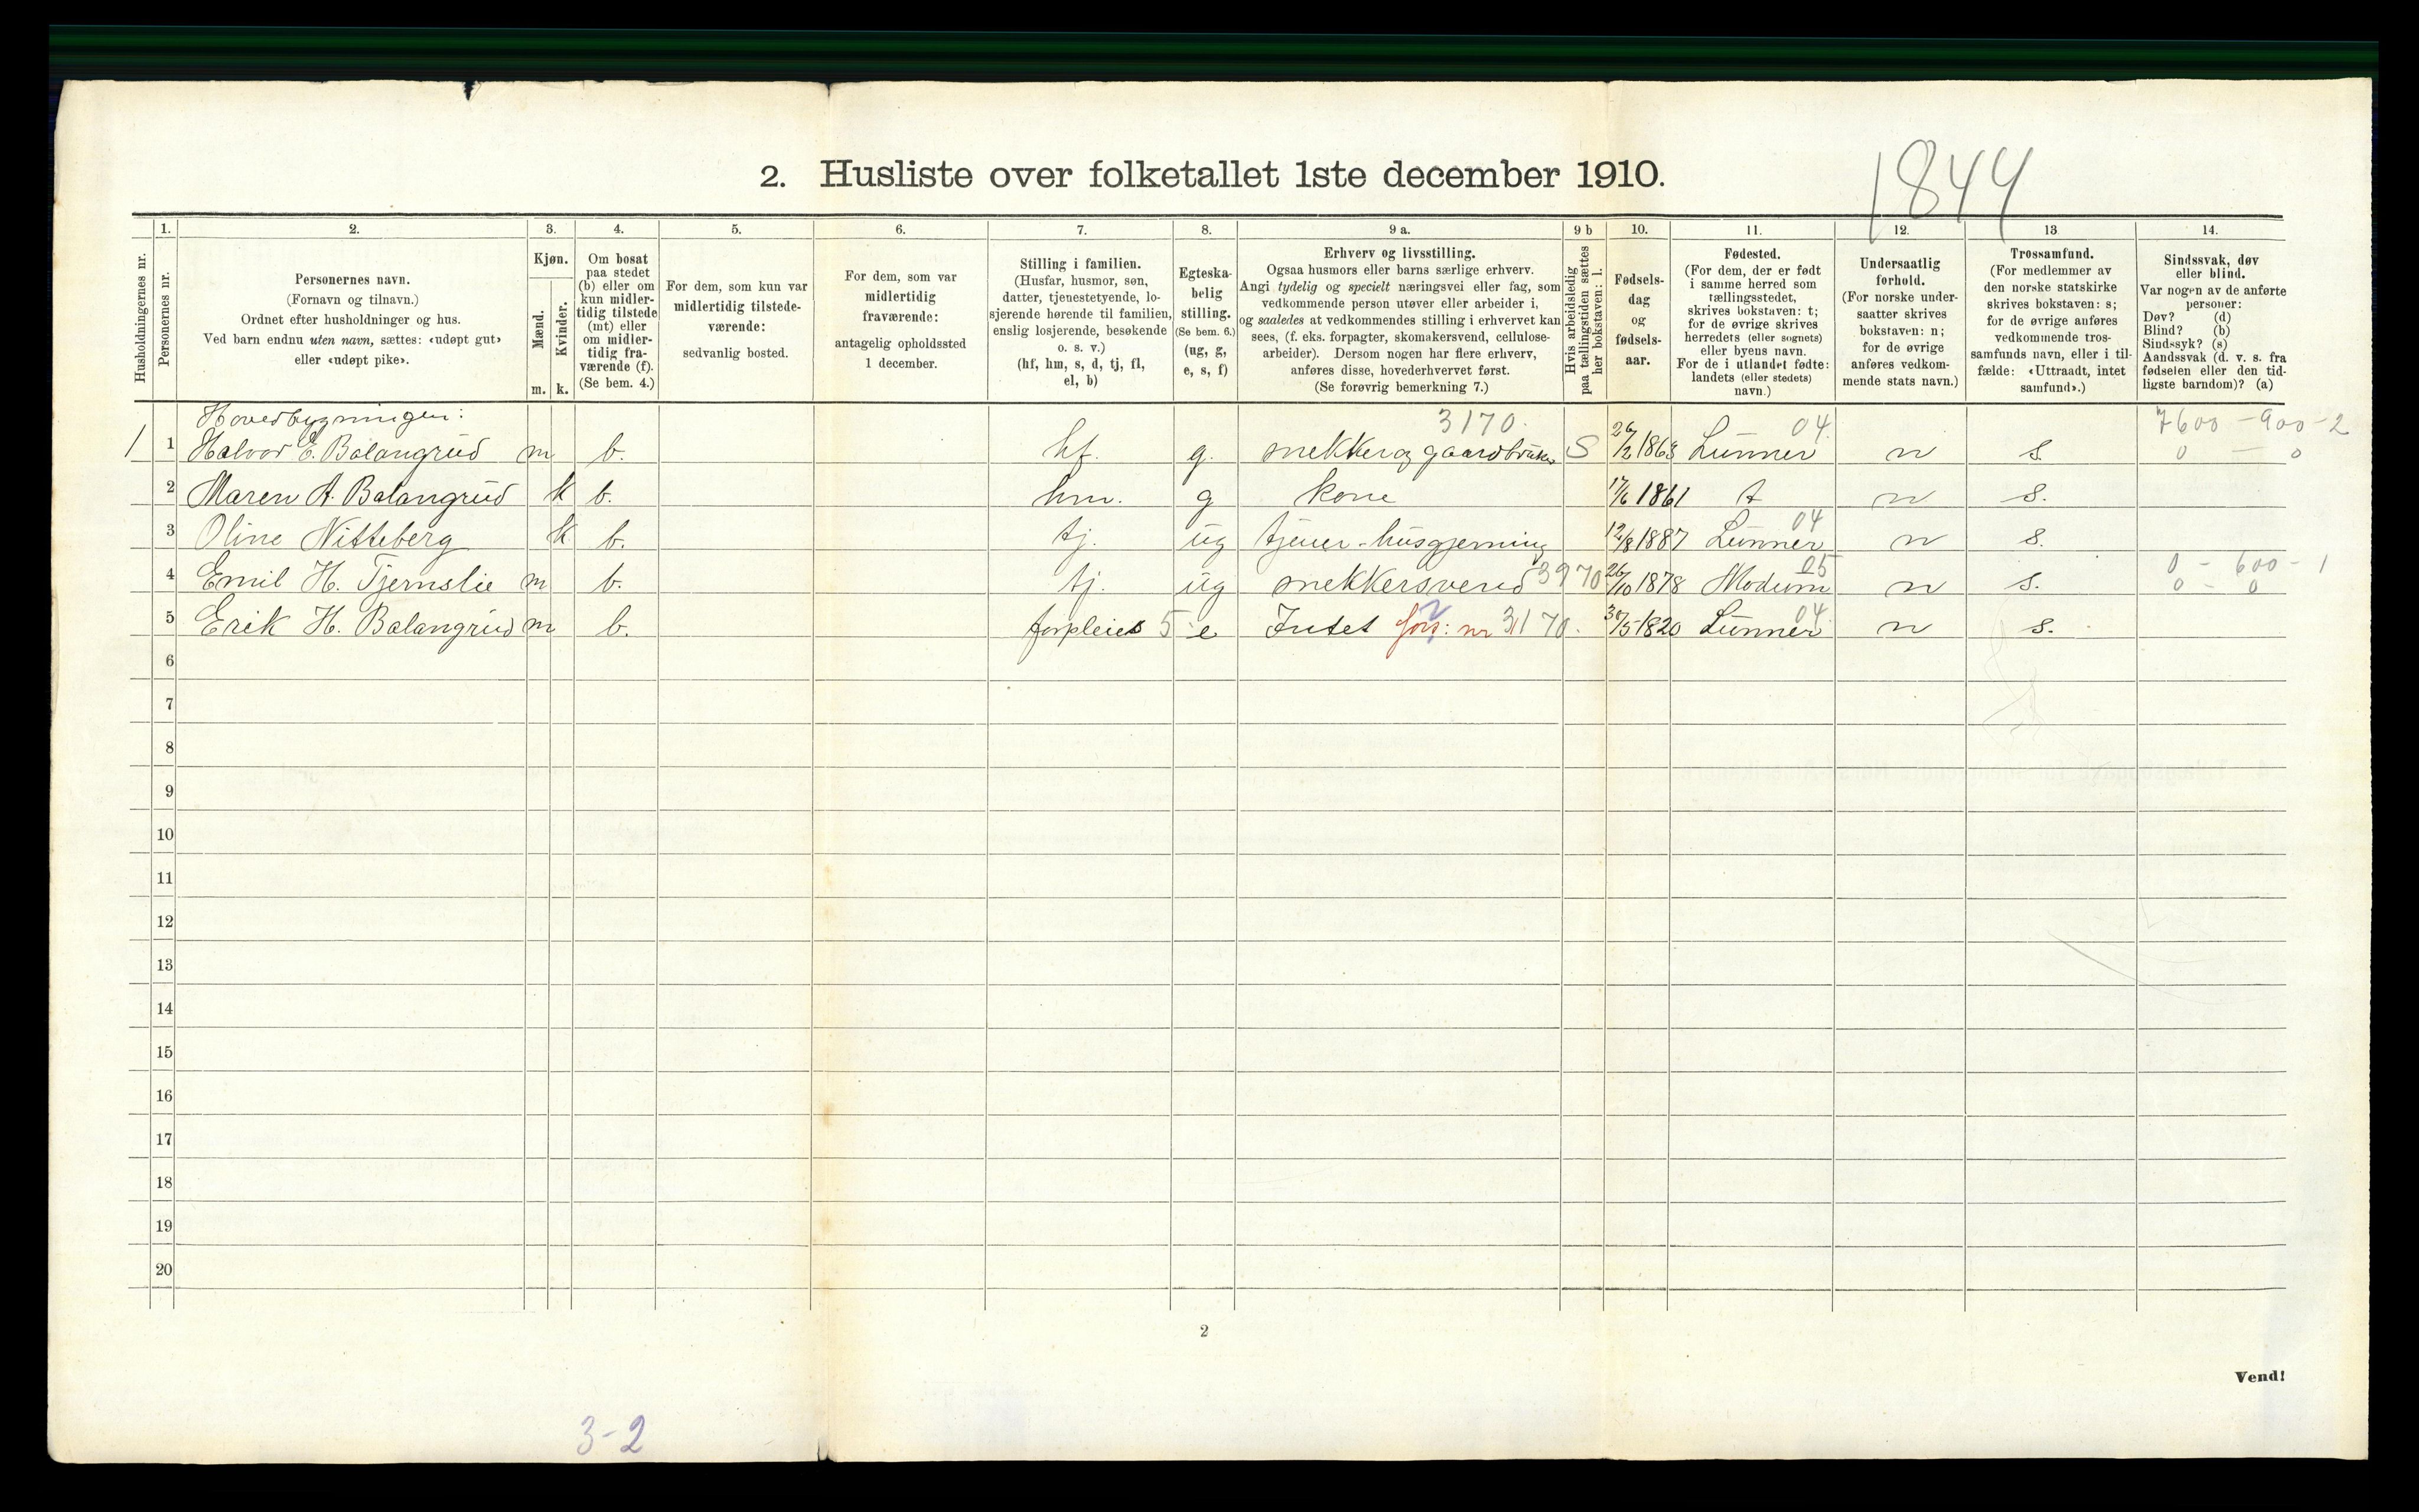 1844
2. Husliste over folketallet 1ste december 1910.
Husholdningernes nr.
1. Personernes nr.
2. Personernes navn.
(Fornavn og tilnavn.)
Ordnet efter husholdninger og hus.
Ved barn endnu uten navn, sættes: «udøpt gut»
eller «udøpt pike».
3. Kjøn.
Mænd. m.
Kvinder. k.
4. Om bosat
paa stedet
(b) eller om
kun midler-
tidig tilstede
(mt) eller
om midler-
tidig fra-
værende (f).
(Se bem. 4.)
5. For dem, som kun var
midlertidig tilstede-
værende:
sedvanlig bosted.
6. For dem, som var
midlertidig
fraværende:
antagelig opholdssted
1 december.
7. Stilling i familien.
(Husfar, husmor, søn,
datter, tjenestetyende, lo-
sjerende hørende til familien,
enslig losjerende, besøkende
o. s. v.)
(hf, hm, s, d, tj, fl,
el, b)
8. Egteska-
belig
stilling.
(Se bem. 6.)
(ug, g,
e, s, f)
9 a. Erhverv og livsstilling.
Ogsaa husmors eller barns særlige erhverv.
Angi tydelig og specielt næringsvei eller fag, som
vedkommende person utøver eller arbeider i,
og saaledes at vedkommendes stilling i erhvervet kan
sees, (f. eks. forpagter, skomakersvend, cellulose-
arbeider). Dersom nogen har flere erhverv,
anføres disse, hovederhvervet først.
(Se forøvrig bemerkning 7.)
9 b Hvis arbeidsledig
paa tællingstiden sættes
her bokstaven: l.
10. Fødsels-
dag
og
fødsels-
aar.
11. Fødested.
(For dem, der er født
i samme herred som
tællingsstedet,
skrives bokstaven: t;
for de øvrige skrives
herredets (eller sognets)
eller byens navn.
For de i utlandet fødte:
landets (eller stedets)
navn.)
12. Undersaatlig
forhold.
(For norske under-
saatter skrives
bokstaven: n;
for de øvrige
anføres vedkom-
mende stats navn.)
13. Trossamfund.
(For medlemmer av
den norske statskirke
skrives bokstaven: s;
for de øvrige anføres
vedkommende tros-
samfunds navn, eller i til-
fælde: «Uttraadt, intet
samfund».)
14. Sindssvak, døv
eller blind.
Var nogen av de anførte
personer:
Døv? (d)
Blind? (b)
Sindssyk? (s)
Aandssvak (d. v. s. fra
fødselen eller den tid-
ligste barndom)? (a)
Hovedbygningen: 3170. 04. 7600 - 900 - 2
1 1 Halvor E. Balangrud m b. hf. g. snekker og gaardbruker S 26/2 1863 Lunner n s. 0 - 0
2 Maren A. Balangrud k b. hm. g kone 17/6 1861 t n s.
3 Oline Nitteberg k b. tj. ug tjener-husgjerning 12/8 1887 Lunner 04 n s.
4 Emil H. Tjernslie m b. tj. ug snekkersvend 3970 26/10 1878 Modum 05 n s. 0 - 600 - 1 0 - 0
5 Erik H. Balangrud m b. forpleies 5 e Intet fors: nr 3170. 30/5 1820 Lunner 04 n s.
6
7
8
9
10
11
12
13
14
15
16
17
18
19
20
2
Vend!
3-2